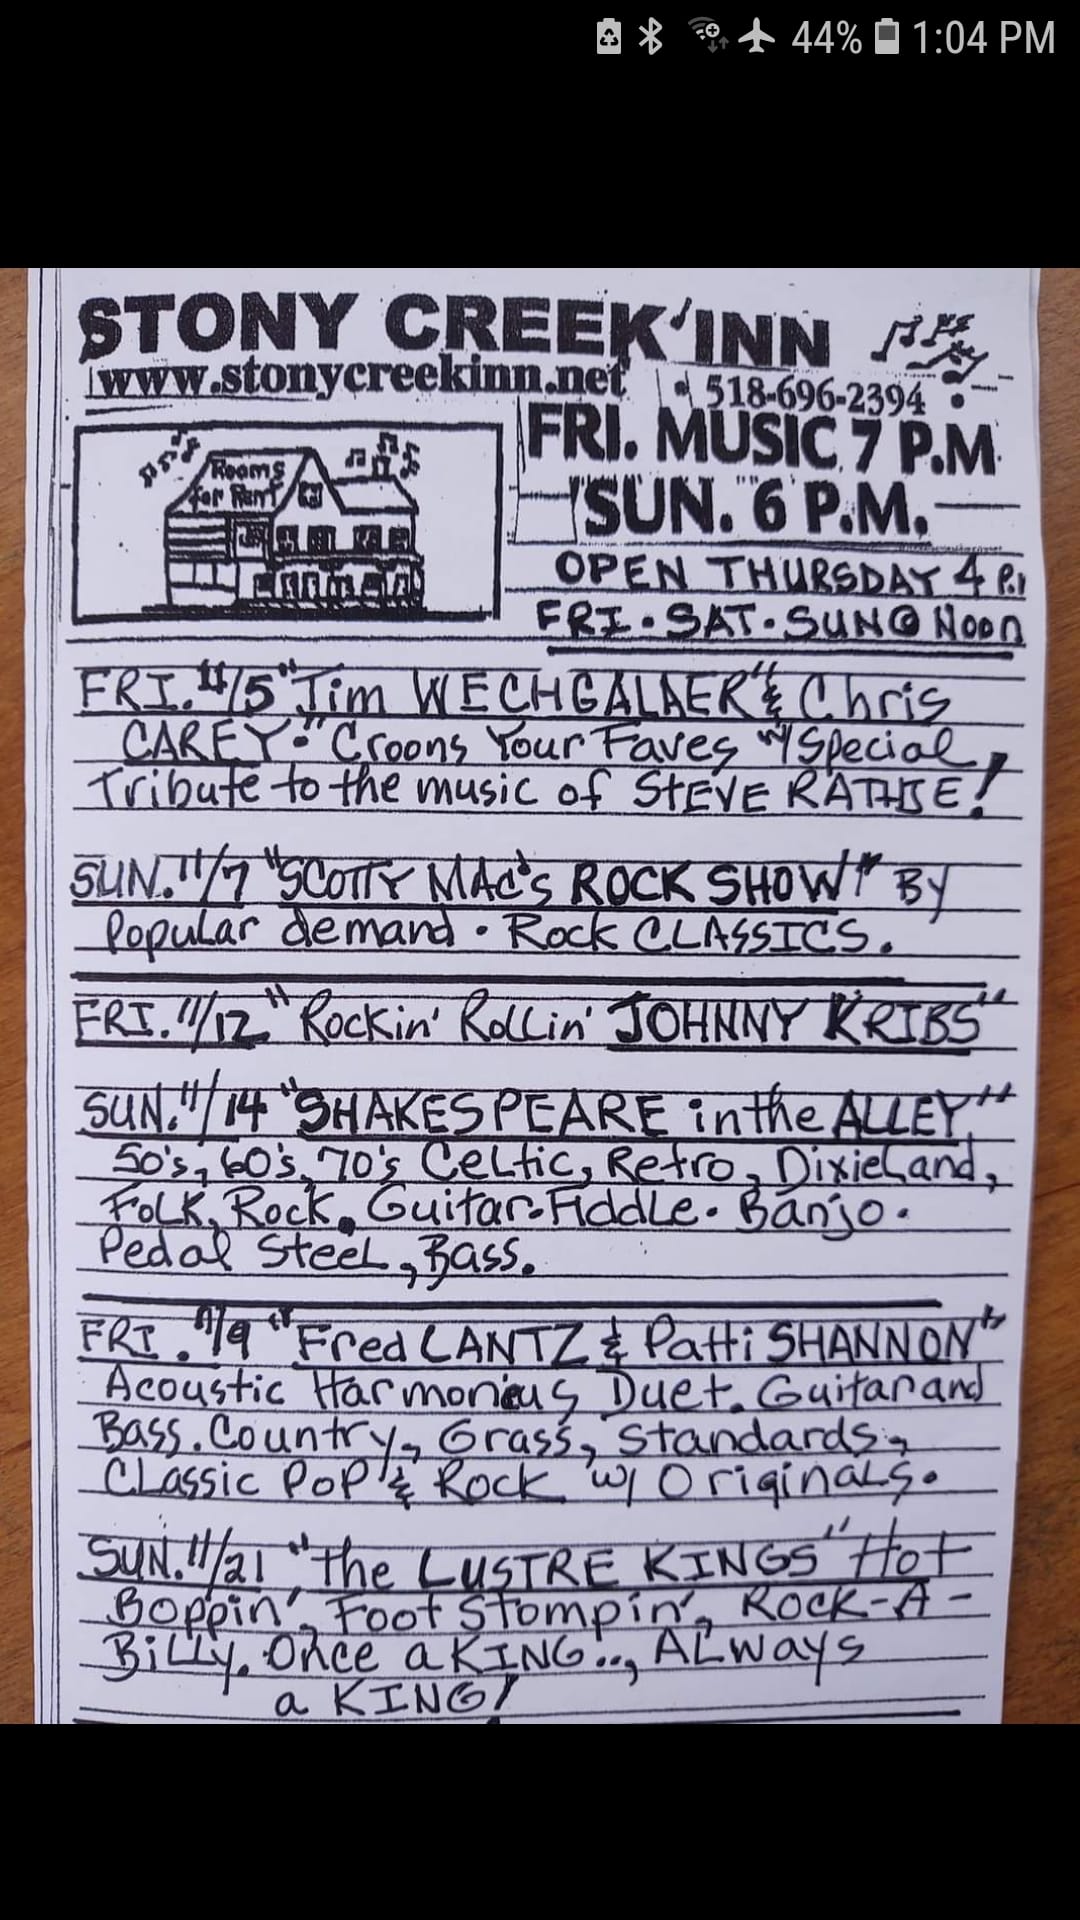 44% 1:04 PM
STONY CREEK INN
www.stonycreekinn.net
518-696-2394
FRI. MUSIC 7 P.M
SUN. 6 P.M.
Rooms
for Rent
OPEN THURSDAY 4 P.
FRI. SAT. SUN @ Noon
FRI. 11/5 "Jim WECHGALAER & Chris
CAREY." Croons Your Faves w/ Special
Tribute to the music of STEVE RATHBE!
SUN. 11/7 "SCOTTY MAC's ROCK SHOW!" BY
Popular demand. Rock CLASSICS.
FRI. 11/12 "Rockin' Rollin' JOHNNY KRIBS"
SUN. 11/14 "SHAKESPEARE in the ALLEY"
50's, 60's, 70's Celtic, Retro, Dixieland,
Folk, Rock. Guitar. Fiddle. Banjo.
Pedal Steel, Bass.
FRI. 11/9 "Fred LANTZ & Patti SHANNON"
Acoustic Harmonious Duet. Guitar and
Bass. Country, Grass, Standards,
Classic Pop & Rock w/ Originals.
SUN. 11/21 "The LUSTRE KINGS" Hot
Boppin', Foot Stompin', Rock-A-
Billy. Once a KING.., ALWays
a KING!